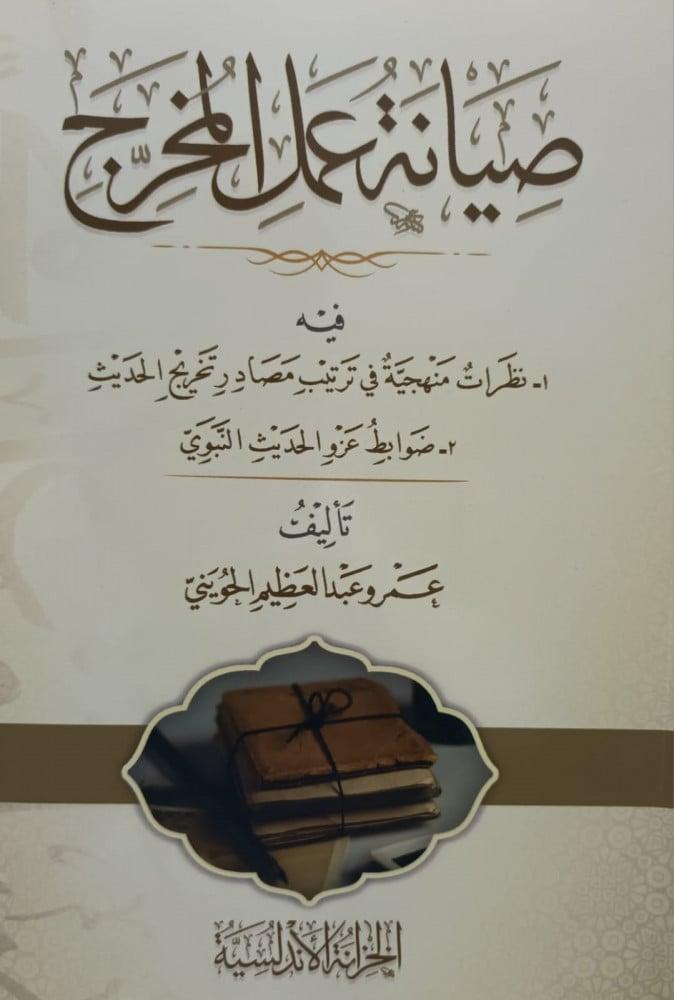 صِيَانَةُ عَمَلِ المُخَرِّجِ
فِيْهِ
١- نَظَرَاتٌ مَنْهَجِيَّةٌ فِي تَرْتِيْبِ مَصَادِرِ تَخْرِيْجِ الحَدِيْثِ
٢- ضَوَابِطُ عَزْوِ الحَدِيْثِ النَّبَوِيِّ
تَأْلِيْفُ
عَمْرو عَبْد العَظِيْمِ الحُوَيْنِيّ
الخِزَانَةُ الأَنْدَلُسِيَّةُ